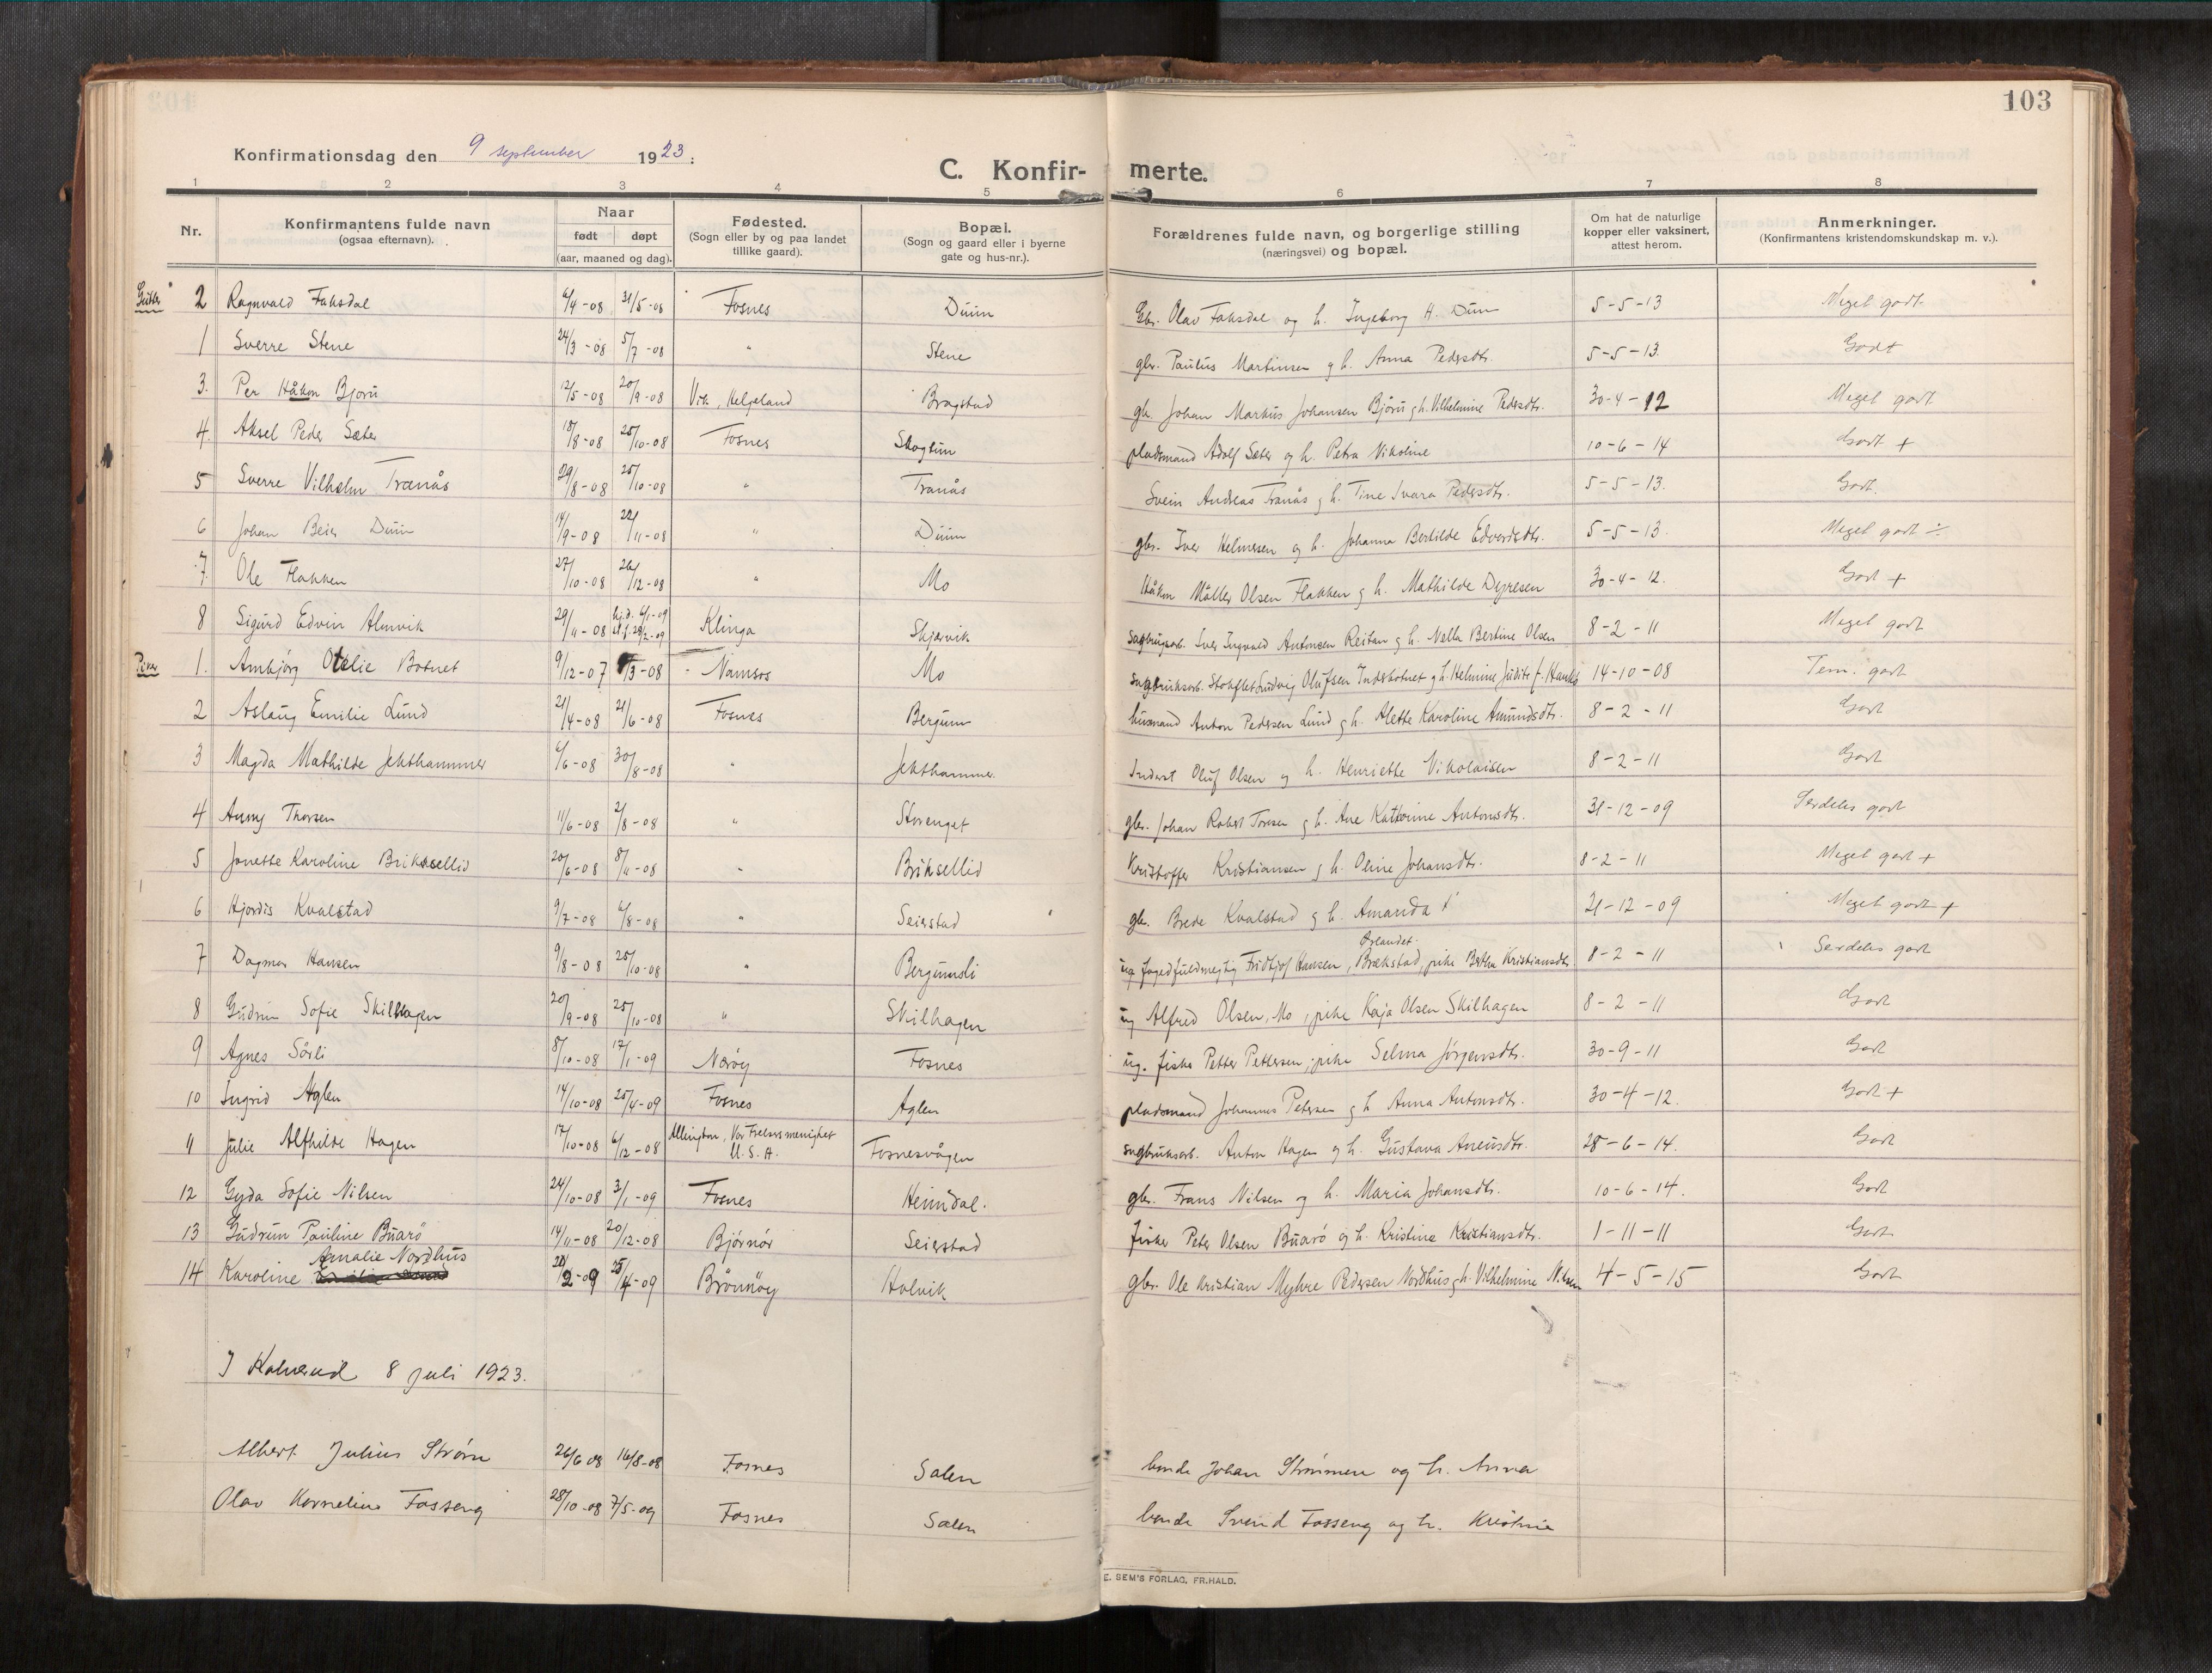 103
Konfirmationsdag den 9 september 1923.
C. Konfirmerte.
1 2 3 4 5 6 7 8
Nr. Konfirmantens fulde navn (ogsaa efternavn). Naar født døpt (aar, maaned og dag). Fødested. (Sogn eller by og paa landet tillike gaard). Bopæl. (Sogn og gaard eller i byerne gate og hus-nr.). Forældrenes fulde navn, og borgerlige stilling (næringsvei) og bopæl. Om hat de naturlige kopper eller vaksinert, attest herom. Anmerkninger. (Konfirmantens kristendomskundskap m. v.).
Gutter 2 Ragnvald Faksdal 6/4-08 31/5-08 Fosnes Duun Gbr. Olav Faksdal og h. Ingeborg H. Duun 5-5-13 Meget godt
1 Sverre Stene 24/3-08 5/7-08 " Stene gbr. Paulus Martinsen og h. Anna Pedersdtr. 5-5-13. Godt
3. Per Håkon Bjøru 12/5-08 20/9-08 Vik, Helgeland Bragstad gb. Johan Markus Johansen Bjøru g h. Vilhelmine Pedersdtr. 30-4-12 Meget godt
4. Aksel Peder Sæter 18/8-08 25/10-08 Fosnes Skogtun pladsmand Adolf Sæter og h. Petra Nikoline 10-6-14 Godt +
5 Sverre Vilhelm Tranås 29/8-08 25/10-08 " Tranås Svein Andreas Tranås g h. Tine Svara Pedersdtr. 5-5-13. Godt.
6 Johan Beier Duun 14/9-08 22/11-08 " Duun gbr. Iver Helmesen og h. Johanna Bertilde Edvardsdtr. 5-5-13. Meget godt ÷
7. Ole Flakken 27/10-08 26/12-08 " Mo Håkon Møller Olsen Flakken g h. Mathilde Dyresen 30-4-12. Godt +
8 Sigurd Edvin Almvik 29/11-08 hj.d. 6/1-09 st.f. 28/2-09 Klinga Skjærvik sagbruksarb. Iver Ingvald Antonsen Reitan g h. Nella Bertine Olsen 8-2-11 Meget godt
Piker 1. Arnbjørg Otelie Botnet 9/12-07 /3-08 - Namsos Mo sagbruksarb. Stokflet Ludvig Olufsen Indsbotnet g h. Helmine Judite f. 14-10-08 Tem. godt
2 Aslaug Emilie Lund 21/4-08 21/6-08 Fosnes Bergum husmand Anton Pedersen Lund g h. Alette Karoline Amundsdtr. 8-2-11 Godt
3 Magda Mathilde Jekthammer 6/6-08 30/8-08 " Jekthammer. Inderst Oluf Olsen og h. Henriette Nikolaisen 8-2-11 Godt
4 Anny Thorsen 11/6-08 2/8-08 " Storenget gbr. Johan Robert Toresen g h. Ane Kathrine Antonsdtr. 31-12-09 Særdeles godt
5 Jonette Karoline Briksellid 20/6-08 8/11-08 " Briksellid Kristoffer Kristiansen g h. Oline Johansdtr. 8-2-11 Meget godt +
6 Hjørdis Kvalstad 9/7-08 6/8-08 " Seierstad gb. Brede Kvalstad g h. Amanda 21-12-09 Meget godt +
7 Dagmar Hansen 9/8-08 25/10-08 " Bergumsli ug fogedfuldmegtig Fridtjof Hansen, Brækstad, Ørlandet. pike Bertha Kristiansdtr 8-2-11 Særdeles godt
8 Gudrun Sofie Skilhagen 20/9-08 25/10-08 " Skilhagen ug Alfred Olsen, Mo, pike Kaja Olsen Skilhagen 8-2-11 Godt
9 Agnes Sörli 8/10-08 17/1-09 Nærøy Fosnes ug. fisker Petter Pettersen, pike Selma Jörgensdtr. 30-9-11 Godt
10 Ingrid Aglen 14/10-08 25/4-09 Fosnes Aglen pladsmand Johannes Petersen g h Anna Antonsdtr. 30-4-12. Godt +
11 Julie Alfhilde Hagen 17/10-08 6/12-08 Allington, Vor Frelsers menighet U.S.A. Fosnesvågen sagbruksarb. Anton Hagen og h. Gustava Areusdtr. 28-6-14. Godt
12 Gyda Sofie Nilsen 24/10-08 3/1-09 Fosnes Heimdal. gbr. Frans Nilsen og h. Maria Johansdtr. 10-6-14. Godt
13 Gudrun Pauline Buarö 14/11-08 20/12-08 Bjørnör Seierstad fisker Peter Olsen Buarö og h. Kristine Kristiansdtr. 1-11-11 Godt
14 Karoline Amalie Nordhus 20/2-09 25/4-09 Brönnöy Holvik gbr. Ole Kristian Myhre Pedersen Nordhus g h. Vilhelmine Nilsen 4-5-15 Godt
I Kolvereid 8 juli 1923.
Albert Julius Strøm 26/6 08 16/8-08 Fosnes Salen bonde Johan Strømmen og h. Anna
Olav Kornelius Fosseng 28/10-08 7/5-09 Fosnes Salen bonde Svend Fosseng og h. Kristine
E. SEM'S FORLAG, FR.HALD.